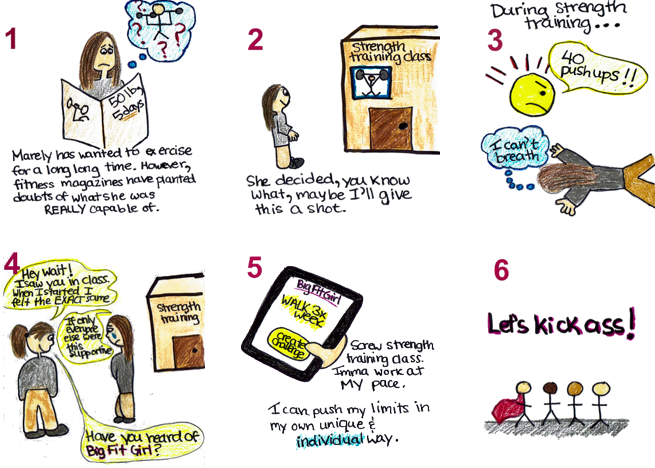 1
? ? ? ?
50 lbs
5 days
Marely has wanted to exercise
for a long long time. However,
fitness magazines have planted
doubts of what she was
REALLY capable of.
2
Strength
training class
She decided, you know
what, maybe I'll give
this a shot.
3
During strength
training...
40
pushups!!
I can't
breath
4
Hey wait!
I saw you in class.
When I started I
felt the EXACT same
If only
everyone
else were
this
supportive
Strength
training
Have you heard of
Big Fit Girl?
5
Big Fit Girl
WALK 3x
week
create
challenge
Screw strength
training class.
Imma work at
MY pace.
I can push my limits in
my own unique &
individual way.
6
Let's kick ass!